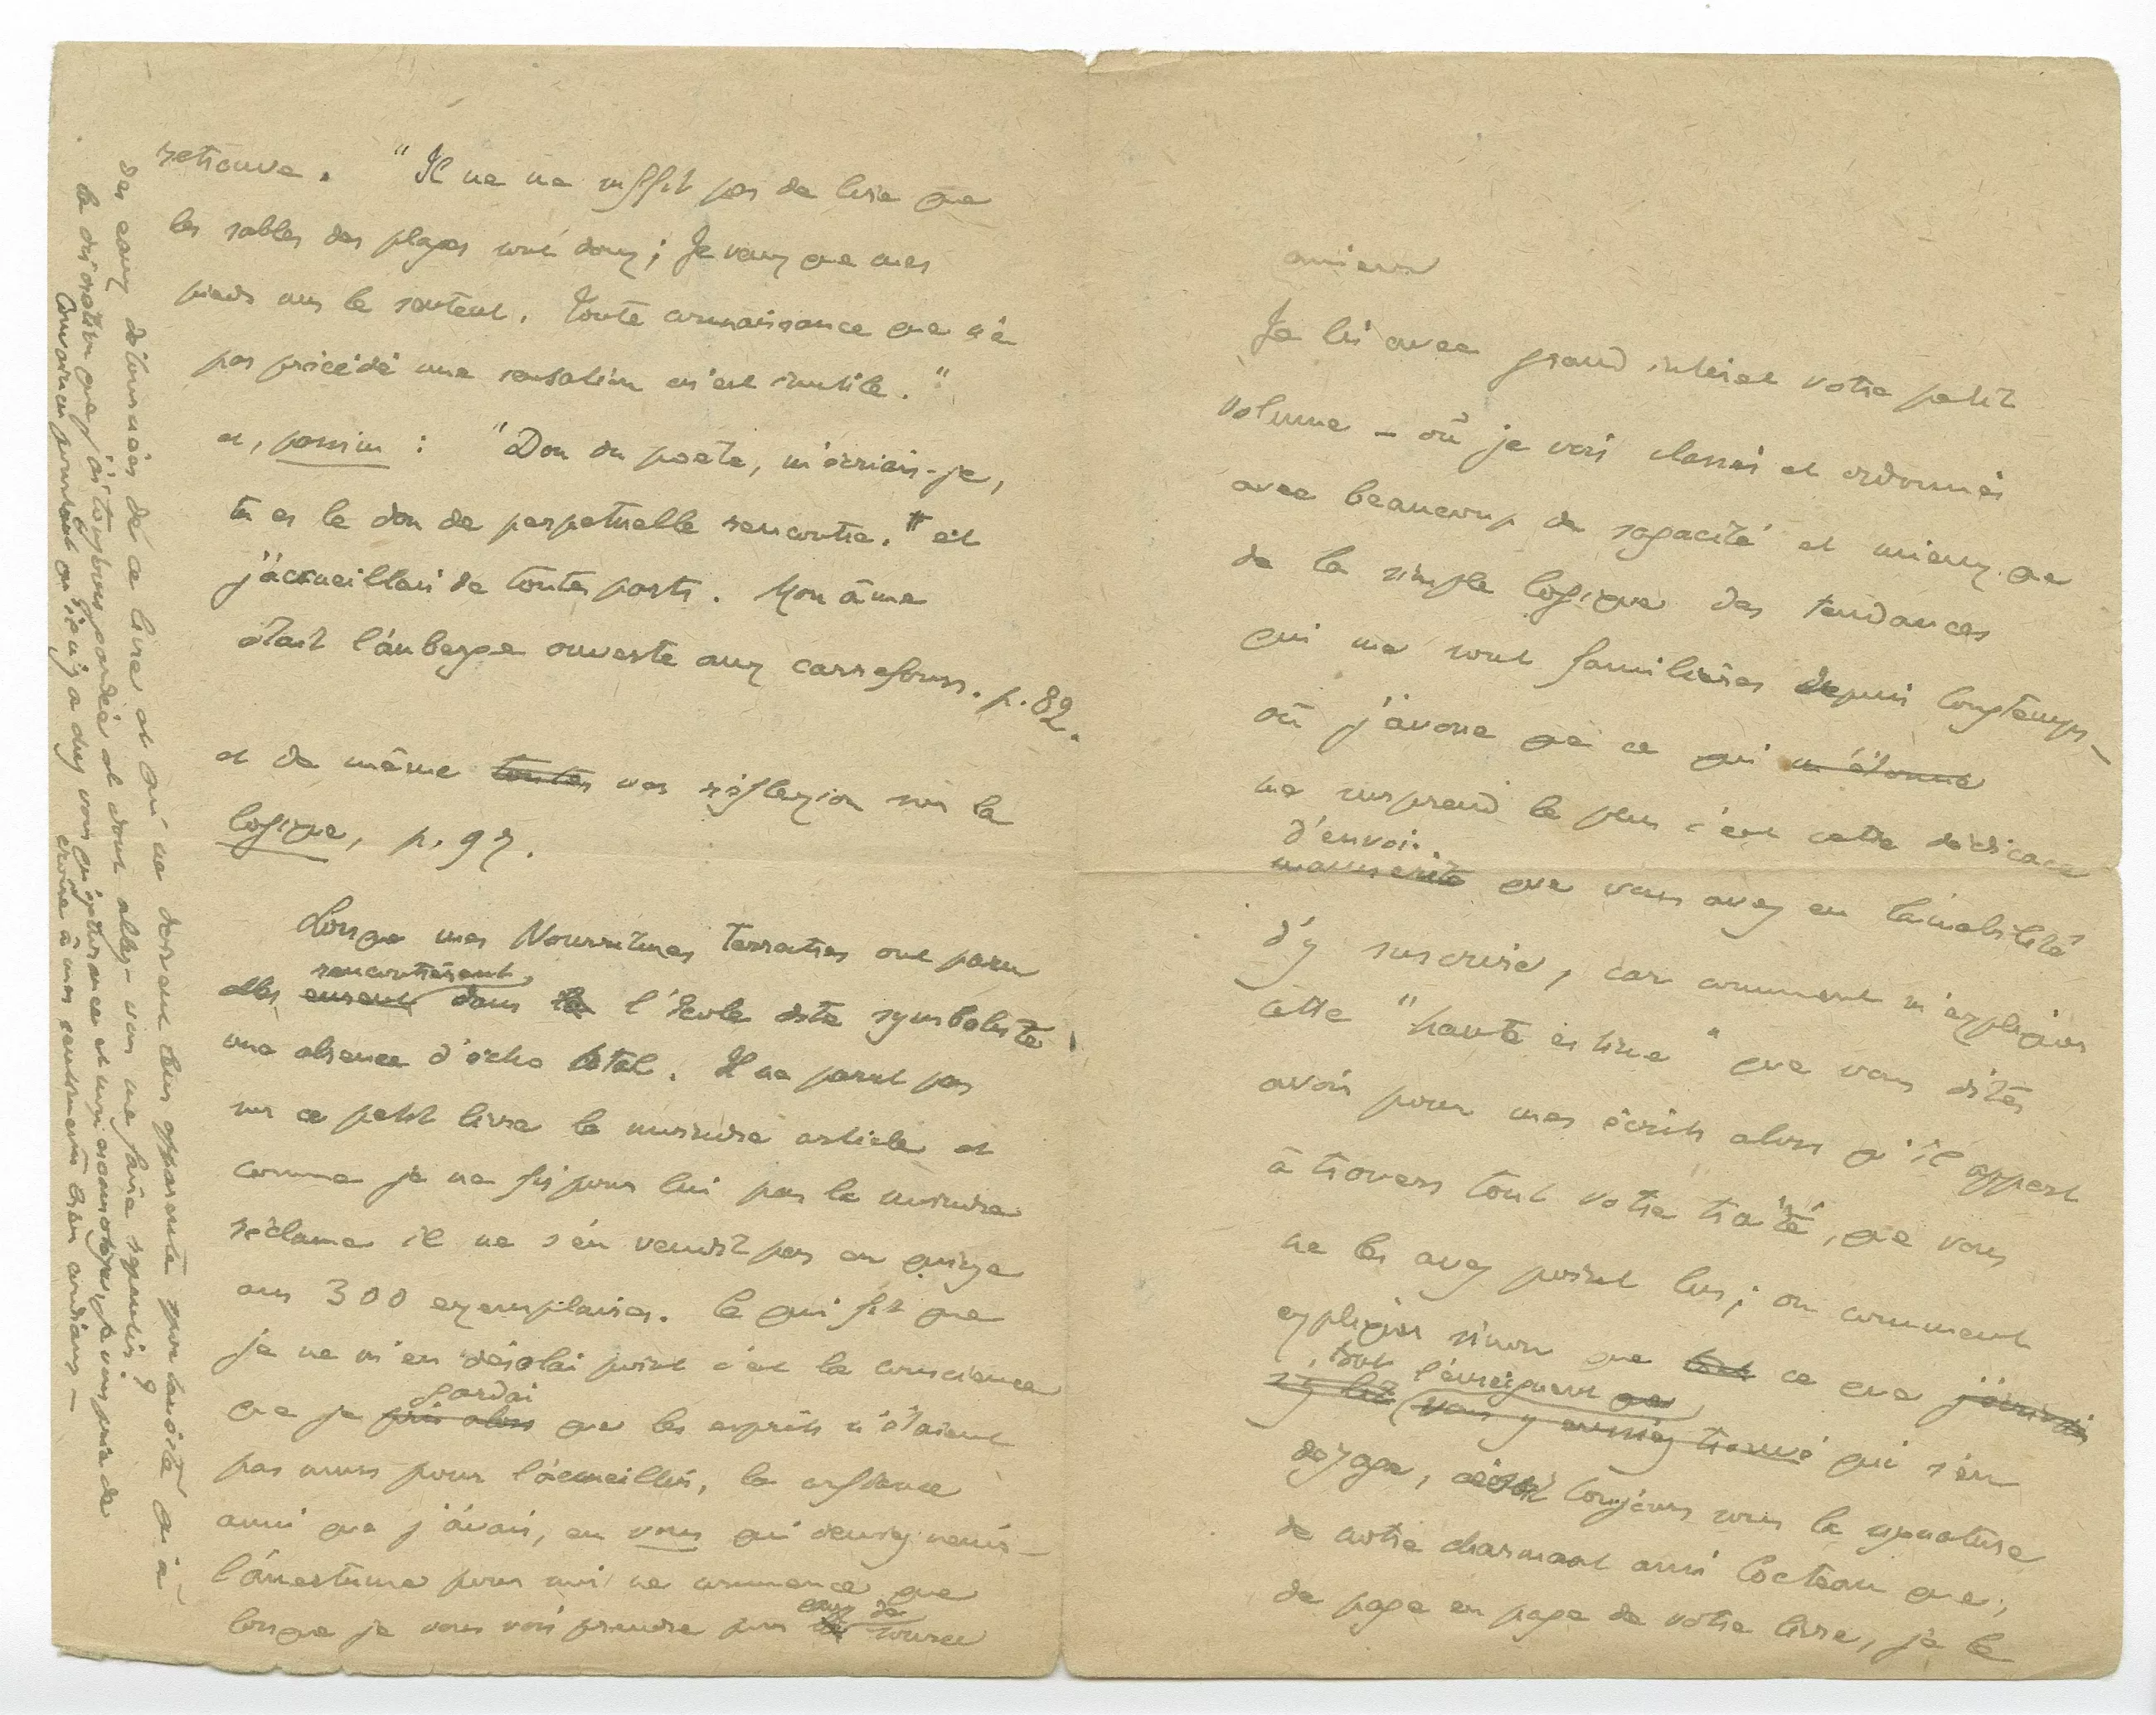 Je lis avec grand intérêt votre petit
volume – où je vois classés et ordonnés
avec beaucoup de sagacité et mieux que
de la simple logique des tendances
qui me sont familières depuis longtemps –
où j'avoue que ce qui m'étonne
me surprend le plus c'est cette dédicace
d'envoi
manuscrite que vous avez eu l'amabilité
d'y inscrire, car comment m'expliquer
cette "haute estime" que vous dites
avoir pour mes écrits alors qu'il appert
à travers tout votre traité, que vous
ne les avez point lus ; ou comment
expliquer sinon que tout ce que j'écrivais
, tout l'enseignement que
vous y eussiez trouvé qui s'en
dégage, ce soit toujours sous la signature
de notre charmant ami Cocteau que,
de page en page de votre livre, je le
retrouve. "Il ne me suffit pas de lire que
les sables des plages sont doux ; Je veux que mes
pieds nus le sentent. Toute connaissance que n'a
pas précédé une sensation m'est inutile."
et, passim : "Don du poète, m'écriais-je,
tu es le don de perpétuelle rencontre." et
j'accueillais de toutes parts. Mon âme
était l'auberge ouverte aux carrefours. p. 82.
et de même toutes vos réflexion sur la
logique, p. 97.
Lorsque mes Nourritures Terrestres ont paru
rencontrèrent
elles eurent dans la l'école dite symboliste
une absence d'écho total. Il ne parut pas
sur ce petit livre le moindre article et
comme je ne fis pour lui pas la moindre
réclame il ne s'en vendit pas en quinze
ans 300 exemplaires. Ce qui fit que
je ne m'en désolai point c'est la conscience
gardai
que je pris alors que les esprits n'étaient
pas murs pour l'accueillir, la confiance
aussi que j'avais, en vous qui deviez venir –
l'amertume pour moi ne commence que
eaux de
lorsque je vous vois prendre pour la source
des eaux détournées de ce livre et qui ne doivent leur apparente nouveauté qu'à
la discrétion que j'ai toujours gardée et dont allez-vous me faire repentir ?
Convaincu pourtant qu'il n'y a chez vous qu'ignorance et non escamotage, je vous prie de
croire à mes sentiments bien cordiaux –